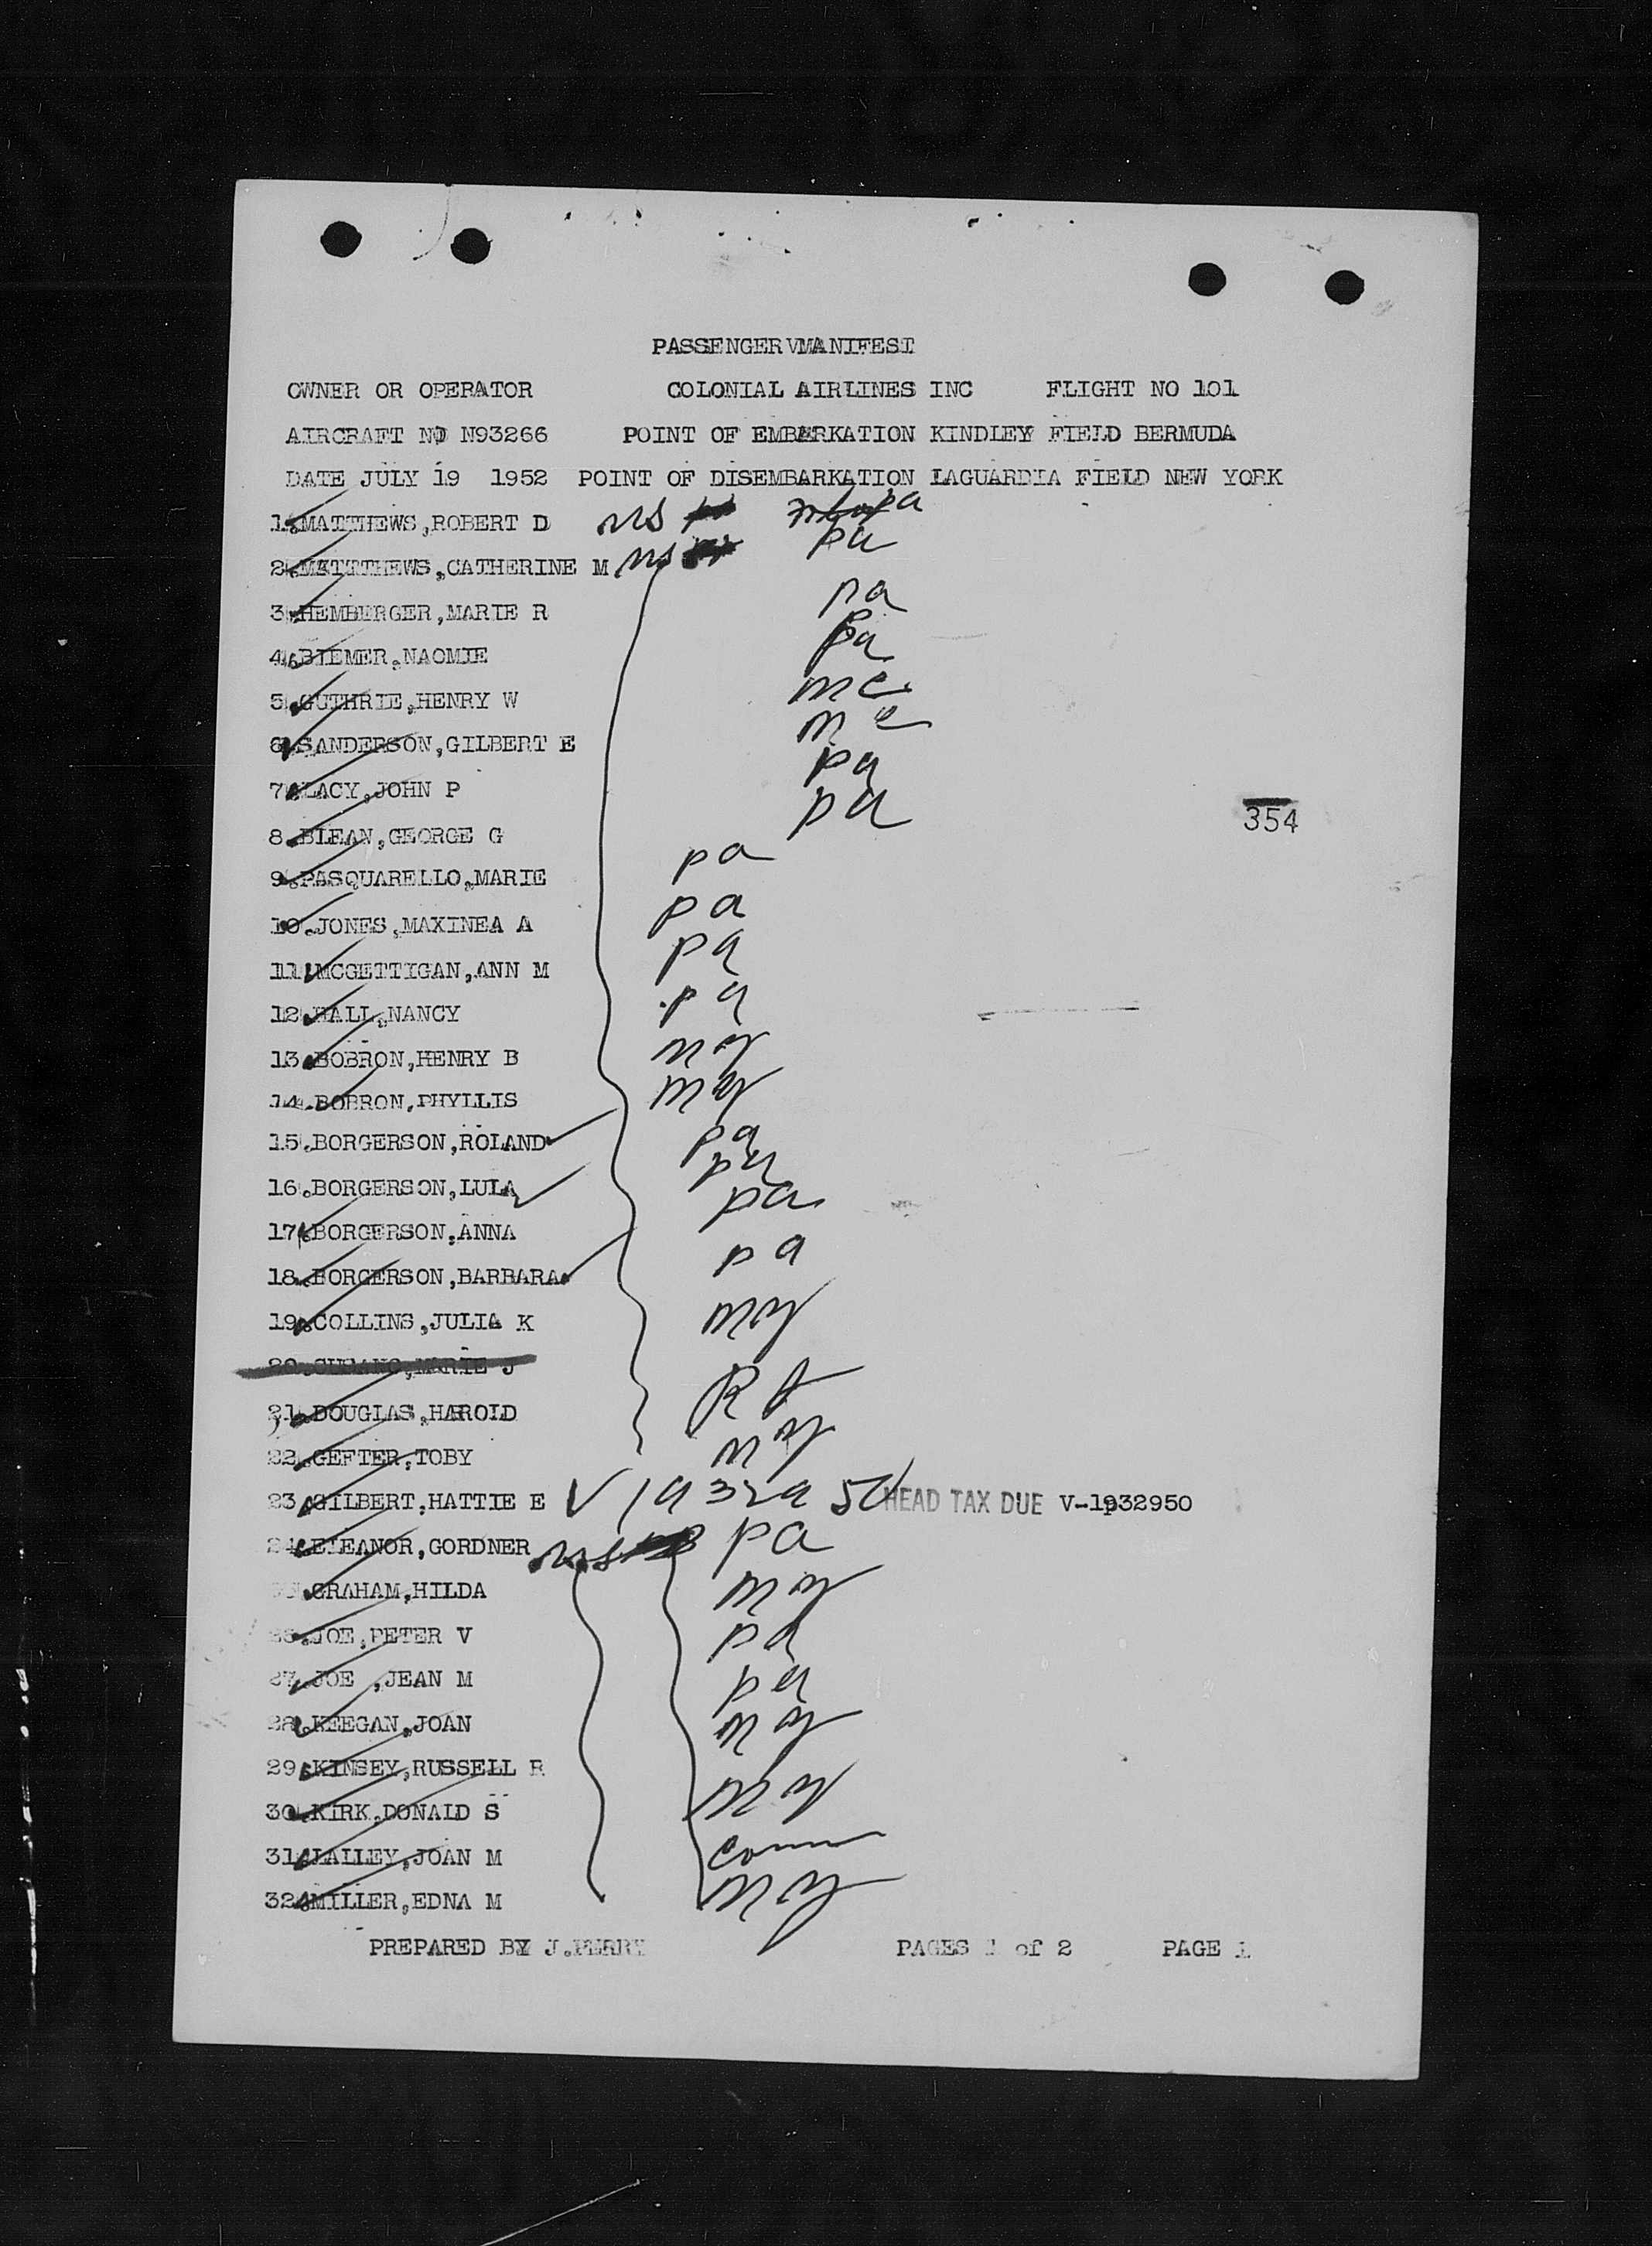 PASSENGER MANIFEST
OWNER OR OPERATOR COLONIAL AIRLINES INC FLIGHT NO 101
AIRCRAFT NO N93266 POINT OF EMBARKATION KINDLEY FIELD BERMUDA
DATE JULY 19 1952 POINT OF DISEMBARKATION LAGUARDIA FIELD NEW YORK
1.MATTHEWS,ROBERT D us pa
2.MATTTHEWS,CATHERINE M us pa
3.HEMBERGER,MARIE R pa
4.BIEMER,NAOMIE pa
5.GUTHRIE,HENRY W
6.SANDERSON,GILBERT E
7.LACY,JOHN P pa
354
8.BLEAN,GEORGE G pa
9.PASQUARELLO,MARIE pa
10.JONES,MAXINEA A pa
11.MCGETTIGAN,ANN M pa
12.BALL,NANCY pa
13.BOBRON,HENRY B ny
14.BOBRON,PHYLLIS ny
15.BORGERSON,ROLAND pa
16.BORGERSON,LULA pa
17.BORGERSON,ANNA pa
18.BORGERSON,BARBARA pa
19.COLLINS,JULIA K ny
21.DOUGLAS,HAROLD
22.GEFTER,TOBY ny
23.GILBERT,HATTIE E V1932950 HEAD TAX DUE V-1932950
24.ELEANOR,GORDNER us pa
GRAHAM,HILDA ny
26.JOE,PETER V pa
27.JOE ,JEAN M pa
28.KEEGAN,JOAN ny
29.KINSEY,RUSSELL R
30.KIRK,DONALD S ny
31.LALLEY,JOAN M conn
32.MILLER,EDNA M ny
PREPARED BY J.PERRY PAGES 1 of 2 PAGE 1